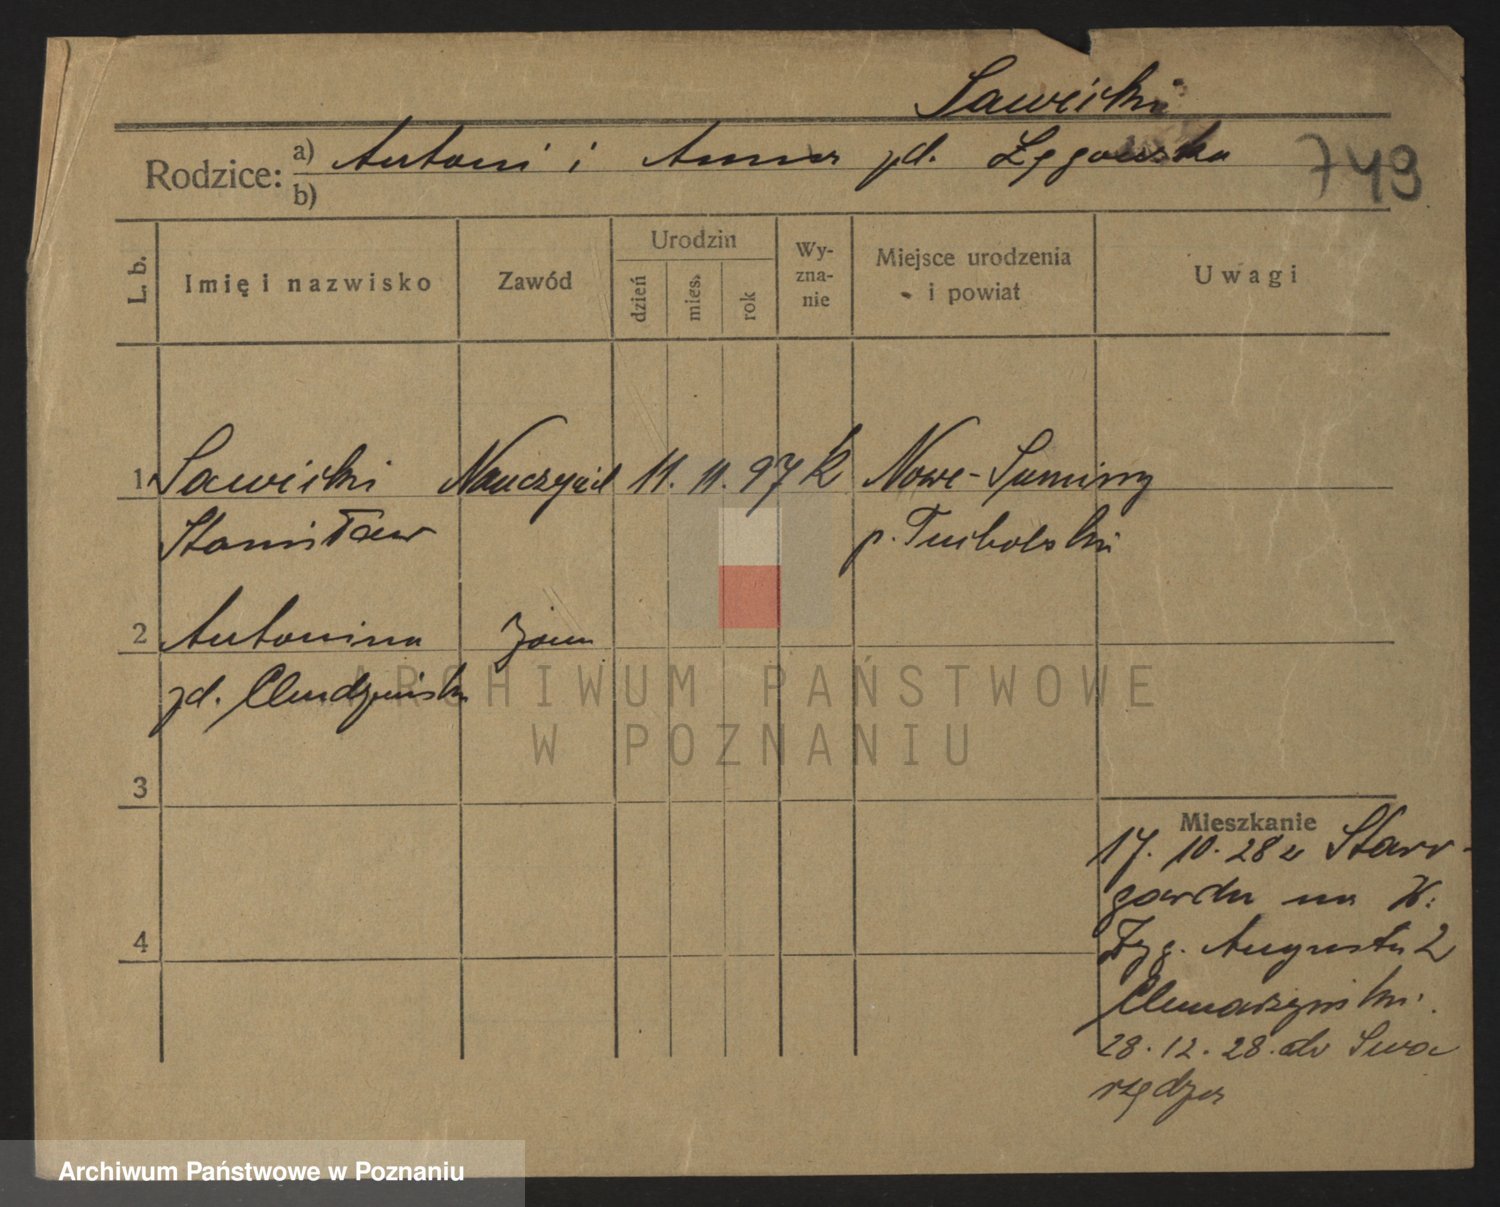 Sawicki
Rodzice: a) Antoni i Anna zd. Łęgowska
b)
749
L. b.
Imię i nazwisko
Zawód
Urodzin
dzień
mies.
rok
Wy-
zna-
nie
Miejsce urodzenia
i powiat
Uwagi
1 Sawicki Nauczyciel 11. 11. 97 k Nowe-Suminy
Stanisław p. Tucholski
2 Antonina żona
zd. Chudzińska
3
Mieszkanie
17. 10. 28 z Star-
gardu na
4
Zyg. Augusta 2
28. 12. 28. do Swa
rzędza
ARCHIWUM PAŃSTWOWE
W POZNANIU
Archiwum Państwowe w Poznaniu